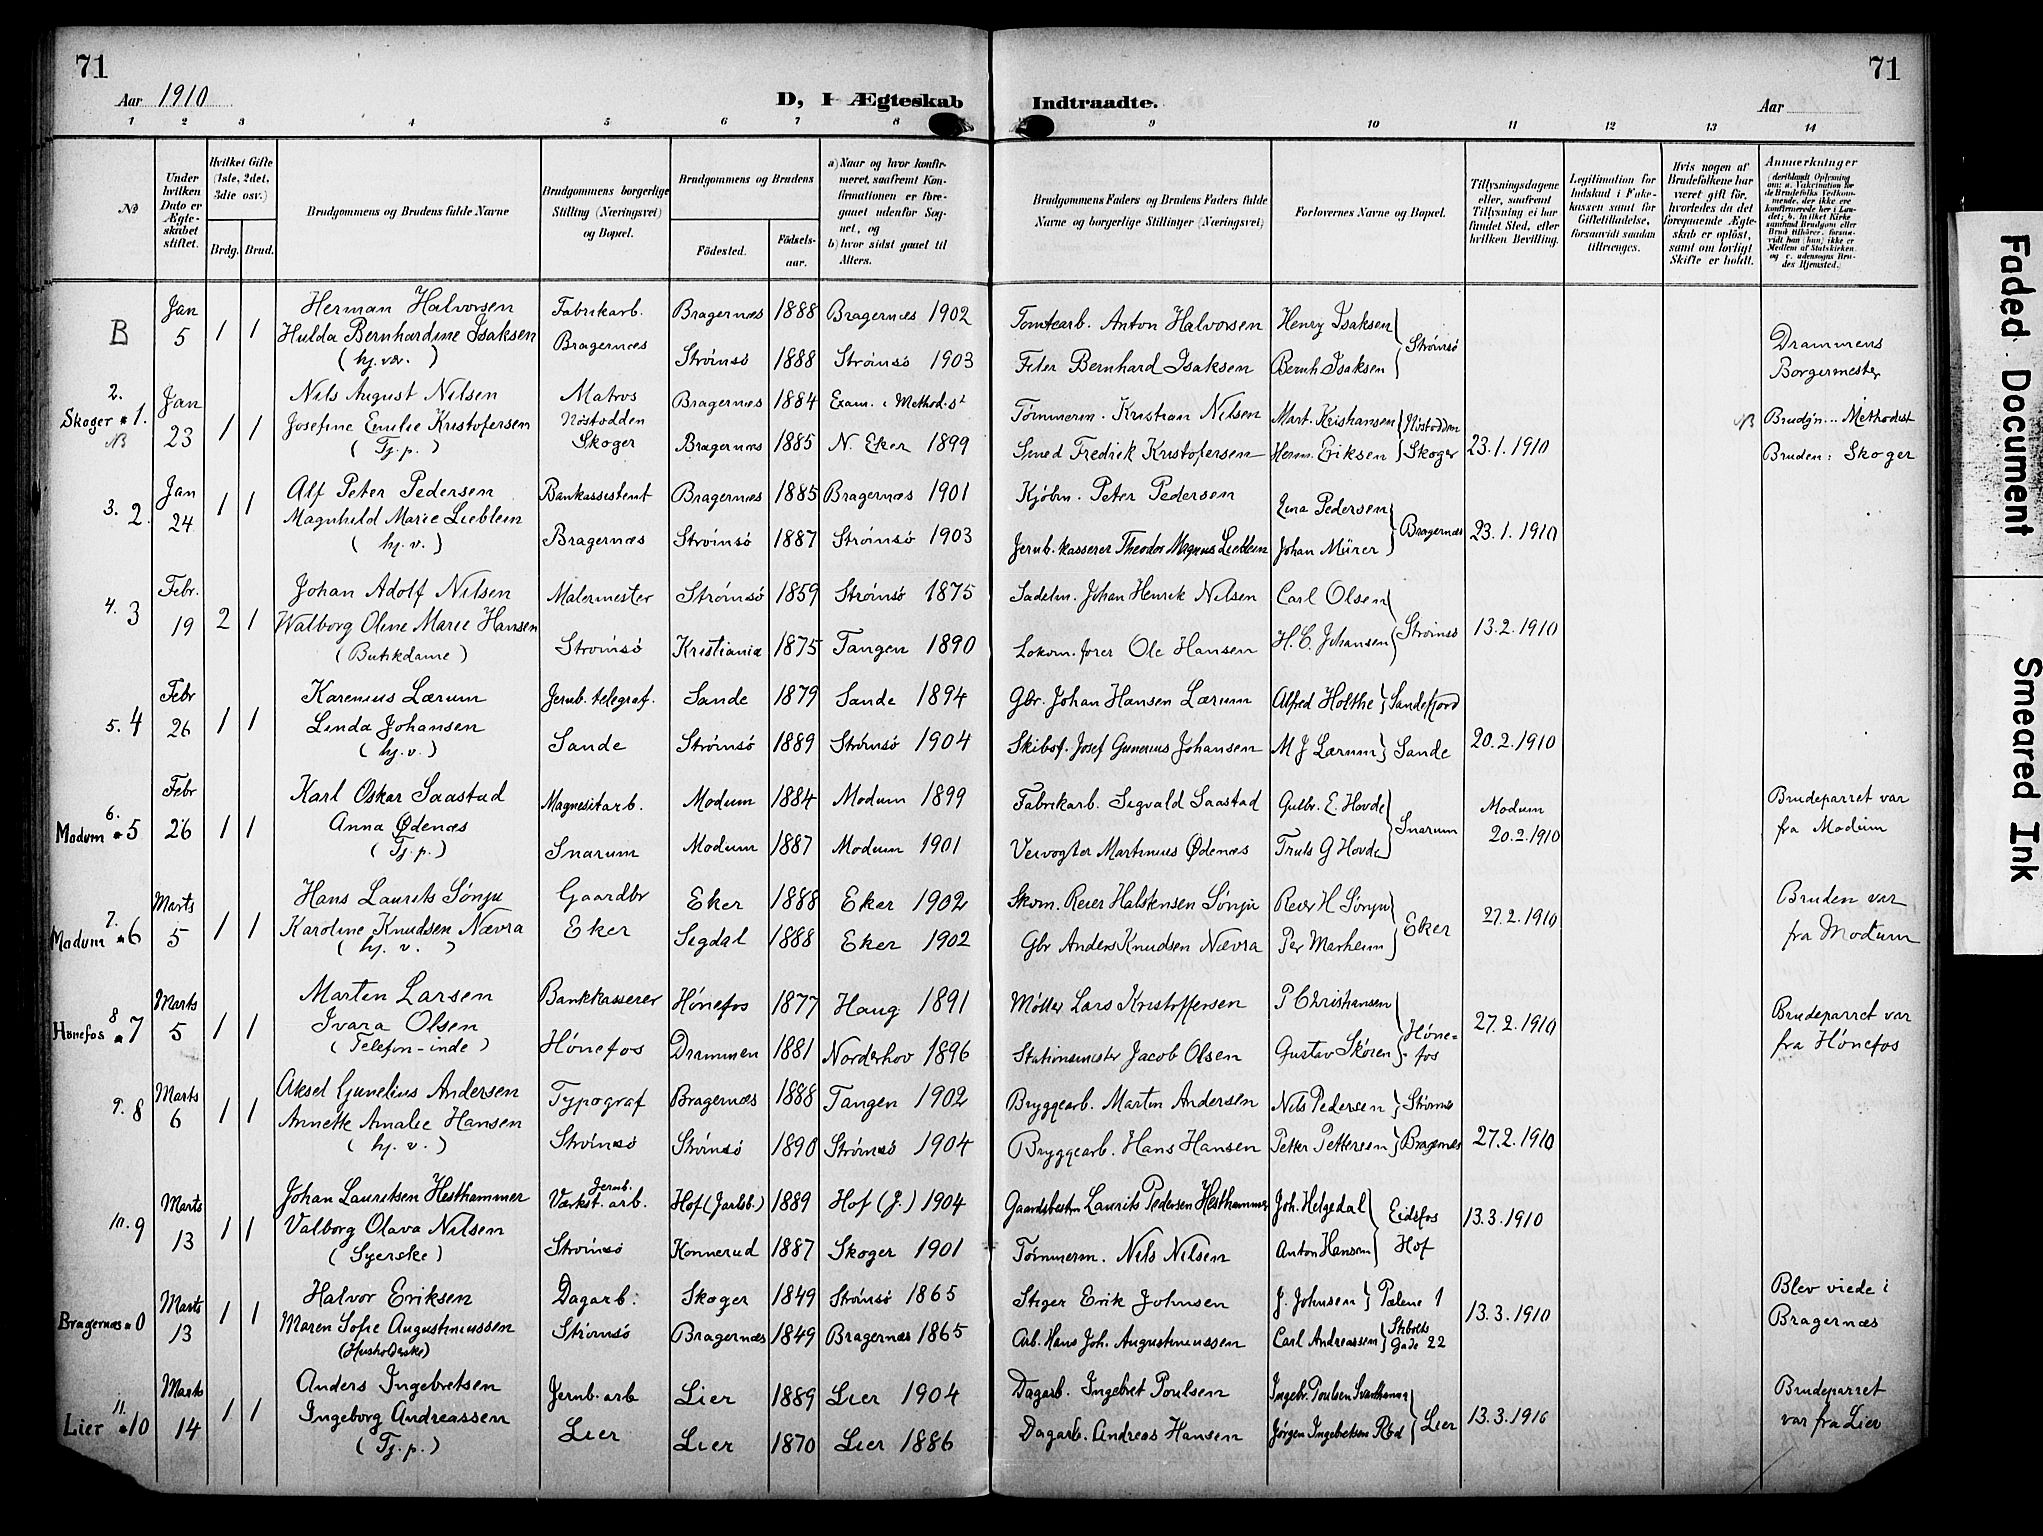 71
71
Aar 1910
D, I Ægteskab Indtraadte.
Aar
1 2 3 4 5 6 7 8 9 10 11 12 13 14
No
Under hvilken Dato er Ægteskabet stiftet.
Hvilket Gifte (1ste, 2det, 3die osv.)
Brdg. Brud.
Brudgommens og Brudens fulde Navne
Brudgommens borgerlige Stilling (Næringsvei) og Bopæl.
Brudgommens og Brudens
Fødested.
Fødsels-aar.
a) Naar og hvor konfir-meret, saafremt Kon-firmationen er fore-gaaet udenfor Sog-net, og
b) hvor sidst gaaet til Alters.
Brudgommens Faders og Brudens Faders fulde Navne og borgerlige Stillinger (Næringsvei)
Forlovernes Navne og Bopæl.
Tillysningsdagene eller, saafremt Tillysning ei har fundet Sted, efter hvilken Bevilling.
Legitimation for Indskud i Enke-kassen samt for Giftetilladelse, forsaavidt saadan tiltrænges.
Hvis nogen af Brudefolkene har været gift før, hvorledes da det foregaaende Ægte-skab er opløst, samt om lovligt Skifte er holdt.
Anmerkninger
B Jan 5 1 1 Herman Halvorsen Fabrikarb. Bragernæs 1888 Bragernæs 1902 Tomtearb. Anton Halvorsen Henry Isaksen Strømsø Drammens
Hulda Bernhardine Isaksen (hj. vær.) Bragernæs Strømsø 1888 Strømsø 1903 Peter Bernhard Isaksen Bernh Isaksen Borgermester
2. Skoger 1. NB Jan 23 1 1 Nils August Nilsen Matros Bragernæs 1884 Exam. i Method. Tømmerm. Kristian Nilsen Mart. Kristiansen Nøstodden NB Methodist
Josefine Emilie Kristofersen (Tj. p.) Nøstodden Skoger Bragernæs 1885 N. Eker 1899 Smed Fredrik Kristofersen Herm. Eriksen Skoger 23.1.1910 Bruden: Skoger
3. 2. Jan 24 1 1 Alf Peter Pedersen Bankassistent Bragernæs 1885 Bragernæs 1901 Kjøbm. Peter Pedersen Lina Pedersen Bragernæs 23.1.1910
Magnhild Marie Lieblein (hj. v.) Bragernæs Strømsø 1887 Strømsø 1903 Jernb. kasserer Theodor Magnus Lieblein Johan Mürer
4. 3 Febr. 19 2 1 Johan Adolf Nilsen Malermester Strømsø 1859 Strømsø 1875 Sadelm. Johan Henrik Nilsen Carl Olsen Strømsø 13.2.1910
Walborg Oline Marie Hansen (Butikdame) Strømsø Kristiania 1875 Tangen 1890 Lokom. fører Ole Hansen H. C. Johansen
5. 4 Febr 26 1 1 Karenius Lærum Jernb. telegraf. Sande 1879 Sande 1894 Gbr. Johan Hansen Lærum Alfred Holthe Sandefjord
Linda Johansen (hj. v.) Sande Strømsø 1889 Strømsø 1904 Skibsf. Josef Gunerius Johansen M J Lærum Sande 20.2.1910
6. Modum 5 Febr 26 1 1 Karl Oskar Saastad Magnesitarb. Modum 1884 Modum 1899 Fabrikarb. Sigvald Saastad Gulbr. E. Hovde Snarum Modum 20.2.1910 Brudeparret var
Anna Ødenæs (Tj. p.) Snarum Modum 1887 Modum 1901 Veivogter Martinius Ødenæs Truls G Hovde fra Modum
7. Modum 6 Marts 5 1 1 Hans Laurits Sønju Gaardbr Eker 1888 Eker 1902 Skom. Reier Halstensen Sønju Reier H Sønju Eker 27.2.1910 Bruden var
Karoline Knudsen Nævra (hj. v.) Eker Sigdal 1888 Eker 1902 Gbr Anders Knudsen Nævra Per Marheim fra Modum
8 Hønefos 7 Marts 5 1 1 Martin Larsen Bankkasserer Hønefos 1877 Haug 1891 Møller Lars Kristoffersen P Christiansen Hønefos 27.2.1910 Brudeparret var
Ivara Olsen (Telefon-inde) Hønefos Drammen 1881 Norderhov 1896 Stationsmester Jacob Olsen Gustav Skøren fra Hønefos
9. 8 Marts 6 1 1 Aksel Gunelius Andersen Typograf Bragernæs 1888 Tangen 1902 Bryggearb. Martin Andersen Nils Pedersen Strømsø
Annette Amalie Hansen (hj. v.) Strømsø Strømsø 1890 Strømsø 1904 Bryggearb. Hans Hansen Petter Pettersen Bragernæs 27.2.1910
10. 9 Marts 13 1 1 Johan Lauritsen Hesthammer Jernb. Værkst. arb. Hof (Jarlsb.) 1889 Hof (J.) 1904 Gaardsbestm Laurits Pedersen Hesthammer Joh. Helgedal Eidsfos 13.3.1910
Valborg Olava Nilsen (Syerske) Strømsø Konnerud 1887 Skoger 1901 Tømmerm. Nils Nilsen Anton Hansen Hof
Bragernæs 0 Marts 13 1 1 Halvor Eriksen Dagarb. Skoger 1849 Strømsø 1865 Stiger Erik Johnsen J. Johnsen Pælene 1 13.3.1910 Blev viede i
Maren Sofie Augustinussen (Husholderske) Strømsø Bragernæs 1849 Bragernæs 1865 Arb. Hans Joh. Augustinussen Carl Andreassen Gade 22 Bragernæs
11. Lier 10 Marts 14 1 1 Anders Ingebretsen Jernb. arb Lier 1889 Lier 1904 Dagarb. Ingebret Poulsen Ingebr. Poulsen Lier 13.3.1910 Brudeparret
Ingeborg Andreassen (Tj. p.) Lier Lier 1870 Lier 1886 Dagarb. Andreas Hansen Jørgen Ingebretsen var fra Lier
Faded Document
Smeared Ink